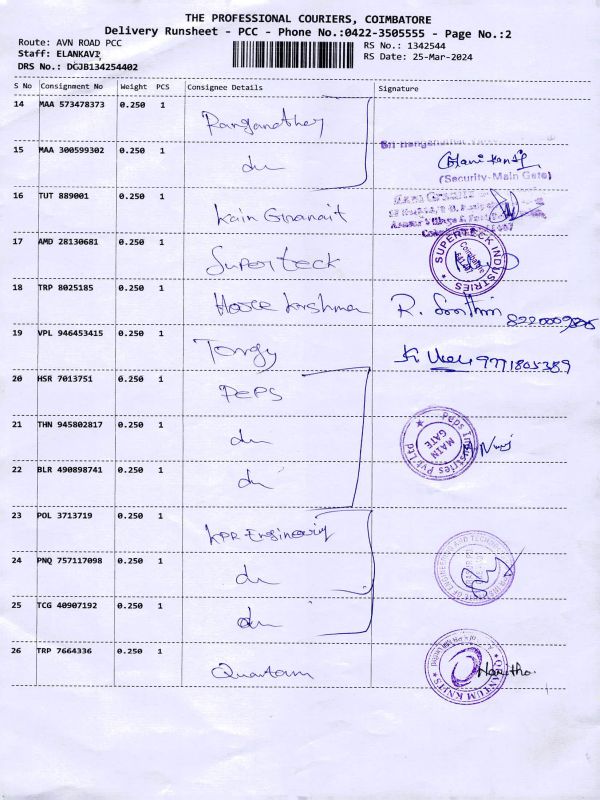 THE PROFESSIONAL COURIERS, COIMBATORE
Delivery Runsheet - PCC - Phone No.:0422-3505555 - Page No.:2
Route: AVN ROAD PCC
RS No.: 1342544
Staff: ELANKAVI,
RS Date: 25-Mar-2024
DRS No.: DGJB134254402
S No Consignment No Weight PCS Consignee Details Signature
14 MAA 573478373 0.250 1
15 MAA 300599302 0.250 1 du
(Security-Main Gate)
16 TUT 889001 0.250 1
17 AMD 28130681 0.250 1 Superteck SUPERTECK INDUSTRIES
18 TRP 8025185 0.250 1
19 VPL 946453415 0.250 1 9771805389
20 HSR 7013751 0.250 1 PEPS
21 THN 945802817 0.250 1 du Peps Industries Pvt Ltd
MAIN GATE
22 BLR 490898741 0.250 1 du
23 POL 3713719 0.250 1 KPR Engineering
24 PNQ 757117098 0.250 1 du
25 TCG 40907192 0.250 1 du
26 TRP 7664336 0.250 1 Quantam QUANTUM KNITS Haritha